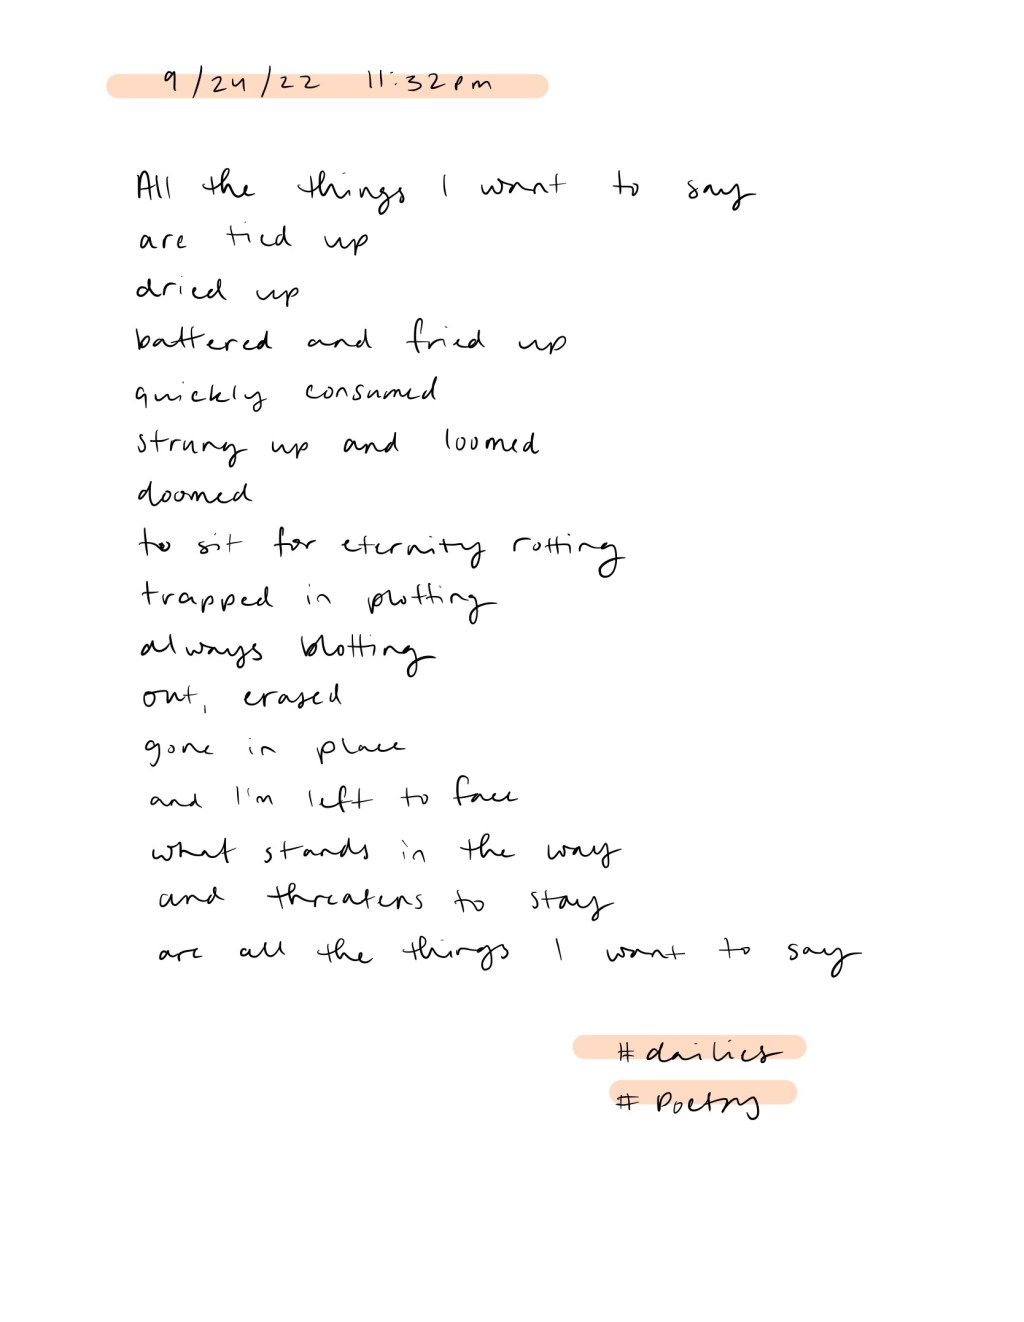 9/24/22 11:32pm
All the things I want to say
are tied up
dried up
battered and fried up
quickly consumed
strung up and loomed
doomed
to sit for eternity rotting
trapped in plotting
always blotting
out, erased
gone in place
and I'm left to face
what stands in the way
and threatens to stay
are all the things I want to say
#dailies
#Poetry